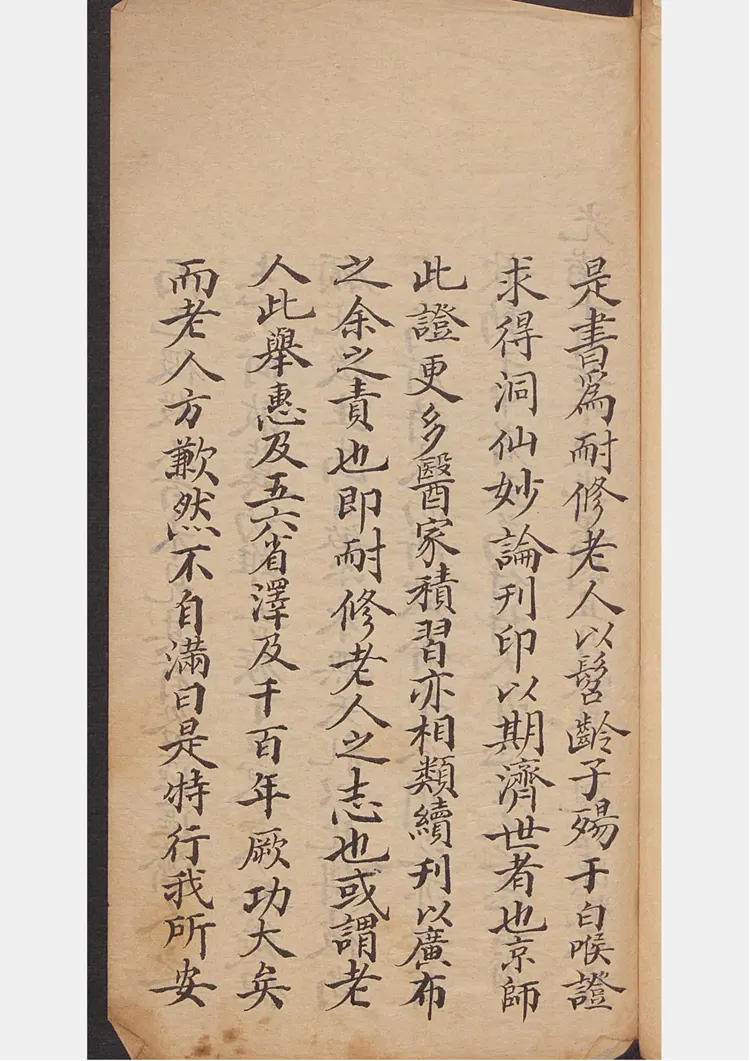 是書爲耐修老人以髫齡子殤于白喉證
求得洞仙妙論刊印以期濟世者也京師
此證更多醫家積習亦相類續刊以廣布
之余之責也即耐修老人之志也或謂老
人此舉惠及五六省澤及千百年厥功大矣
而老人方歉然不自滿曰是特行我所安